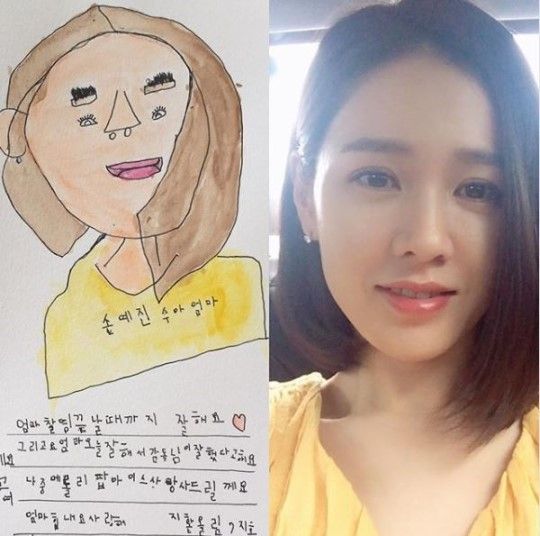 손예진 수아엄마
엄마 촬영끝날때까지 잘해요
그리고요 엄마오늘잘해서감동님이잘했다고해요
나중에롤리팝아이스사탕사드릴게요
엄마힘내요사랑해 지환올림 9지호